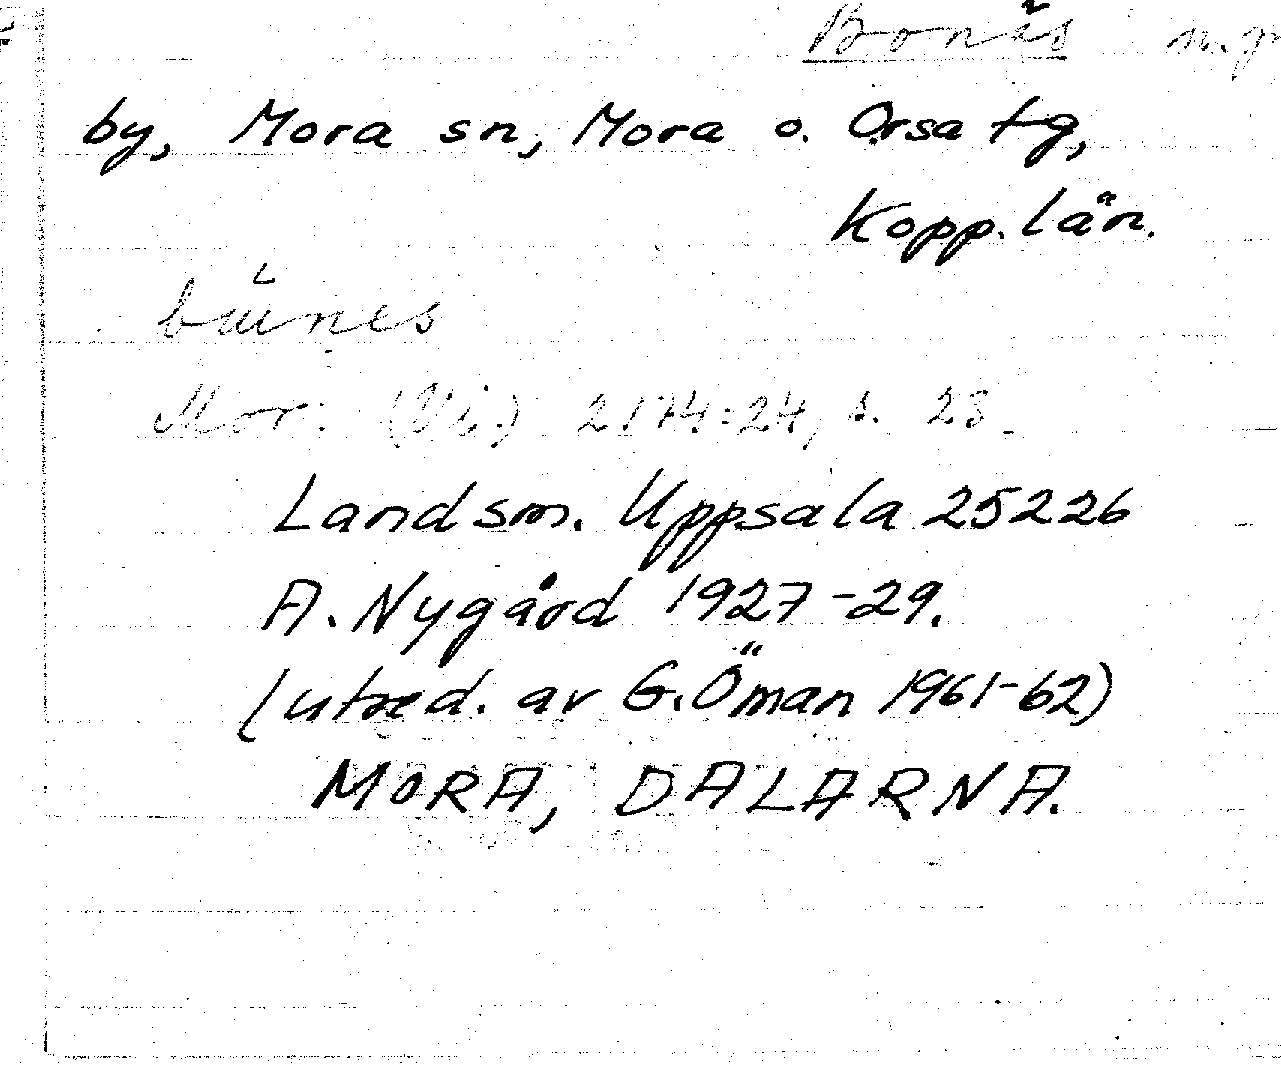 Bonäs n.pr
by, Mora sn, Mora o. Orsa tg,
Kopp. län.
Mor. (Vi.) 2174:24, s. 23
Landsm. Uppsala 25226
A. Nygård 1927-29.
(utred. av G. Öman 1961-62)
MORA, DALARNA.